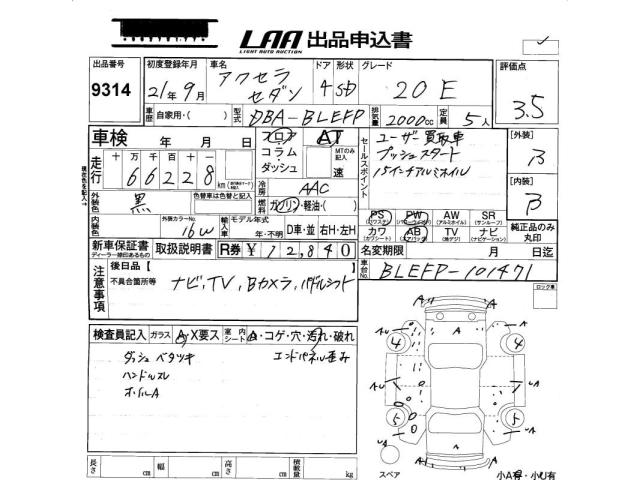 LAA 出品申込書
LIGHT AUTO AUCTION
出品番号 9314
初度登録年月 21年 9月
車名 アクセラ セダン
ドア 4 形状 SD
グレード 20E
評価点 3.5
車歴 自家用・( )
型式 DBA-BLEFP
排気量 2000cc
定員 5人
車検 年 月 日
フロア コラム・ダッシュ
AT
MTのみ記入 速
セールスポイント
ユーザー買取車
プッシュスタート
15インチアルミホイル
[外装] B
[内装] B
走行 十万 6万 6千 2百 2十 8一 km
冷房 AAC
外装色 黒
色替車は色替と記入
燃料 ガソリン・軽油・( )
内装色
外装カラーNo. 16W
輸入車
モデル年式 年・不明
D車・並 右H・左H
PS (パワステ) PW (パワーウィンドウ) AW (アルミホイル) SR (サンルーフ)
カワ (カワシート) AB (エアバック) TV (地デジ) ナビ (ナビゲーション)
純正品のみ丸印
新車保証書 取扱説明書 R券 ¥12,840
ディーラー捺印あるもの
名変期限 月 日迄
車台No. BLEFP-101471
注意事項
後日品【 】
不具合箇所等
ナビ,TV,Bカメラ,パドルシフト
ロック車
検査員記入 ガラス A・X要ス 室内シート A・コゲ・穴・汚れ・破れ
ダッシュ ベタツキ
エンドパネル歪み
ハンドルスレ
ホイルA
長さ cm 幅 cm 高さ cm 積載量 kg
スペア
小A有・小U有